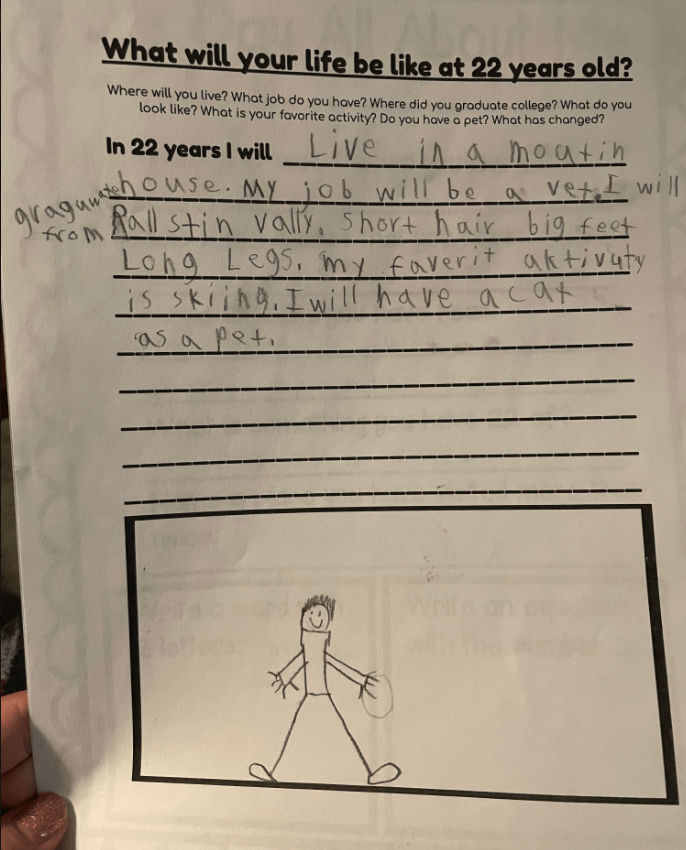 What will your life be like at 22 years old?
Where will you live? What job do you have? Where did you graduate college? What do you
look like? What is your favorite activity? Do you have a pet? What has changed?
In 22 years I will Live in a moutin
house. My job will be a vet. I will
graguwate from Rall stin vally. short hair big feet
Long Legs. my faverit aktivuty
is skiing. I will have a cat
as a pet.
Write a word
letters
Write an equation
with the number